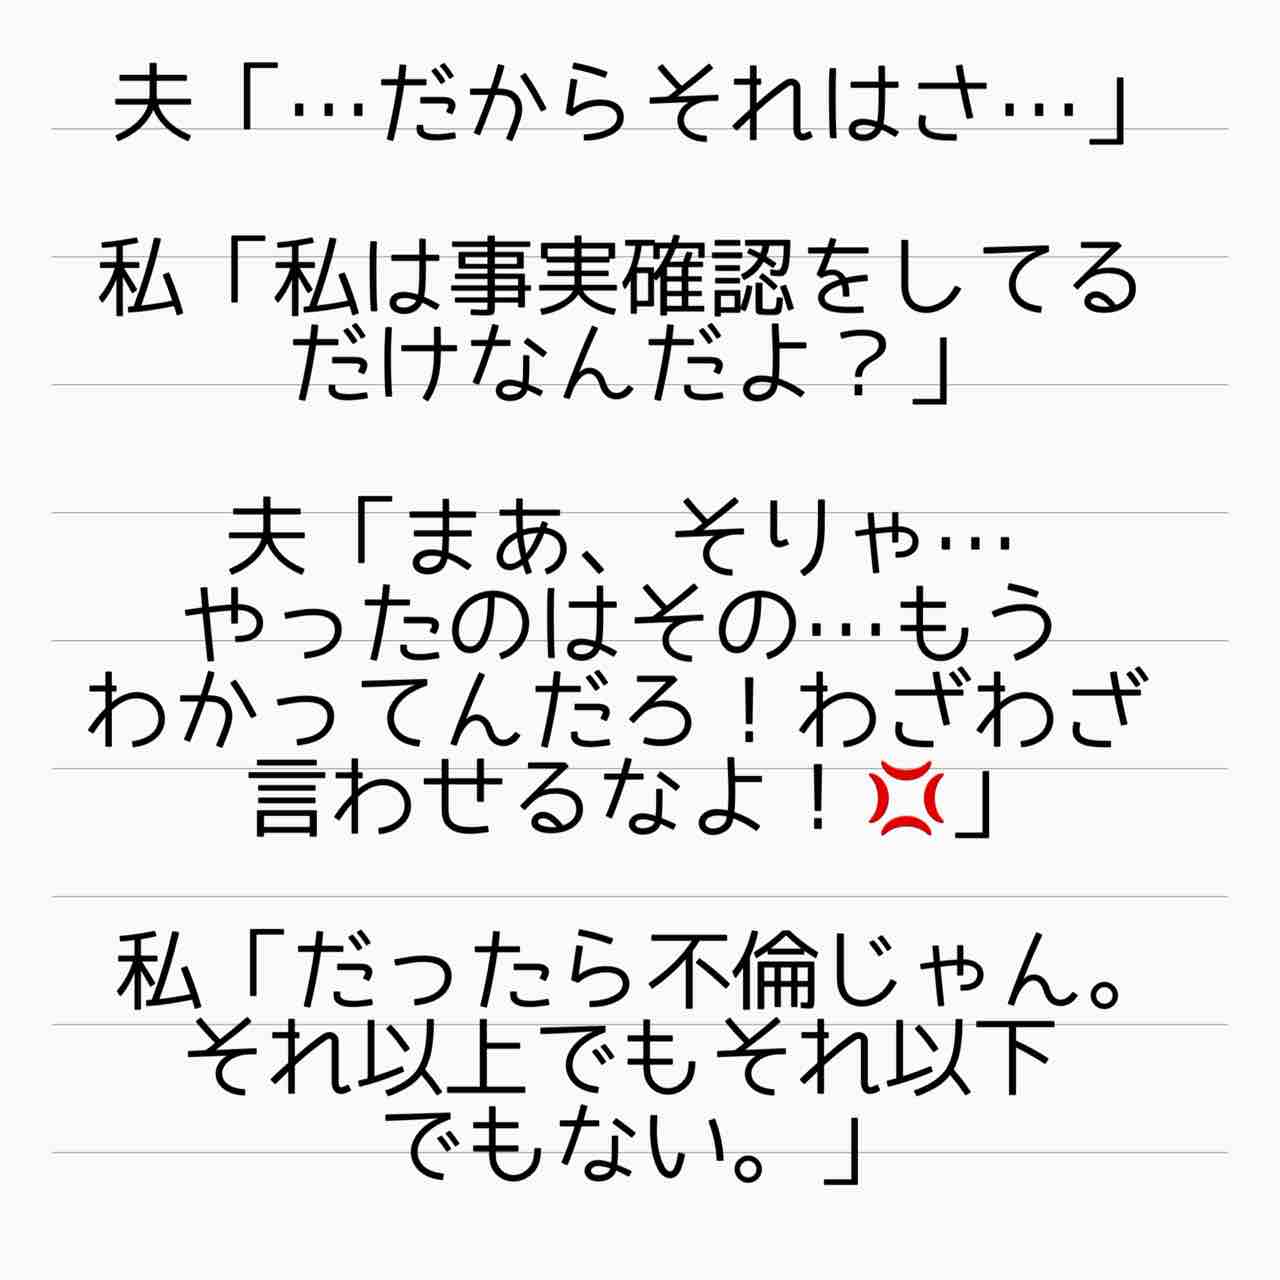 夫「…だからそれはさ…」
私「私は事実確認をしてる
だけなんだよ？」
夫「まあ、そりゃ…
やったのはその…もう
わかってんだろ！わざわざ
言わせるなよ！💢」
私「だったら不倫じゃん。
それ以上でもそれ以下
でもない。」